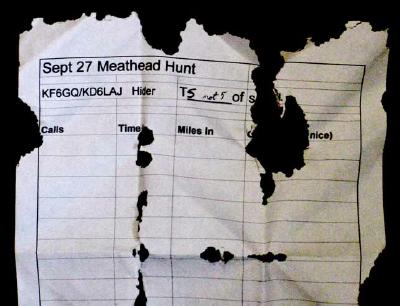 Sept 27 Meathead Hunt
KF6GQ/KD6LAJ Hider T5 not 5 of
Calls Time Miles In nice)